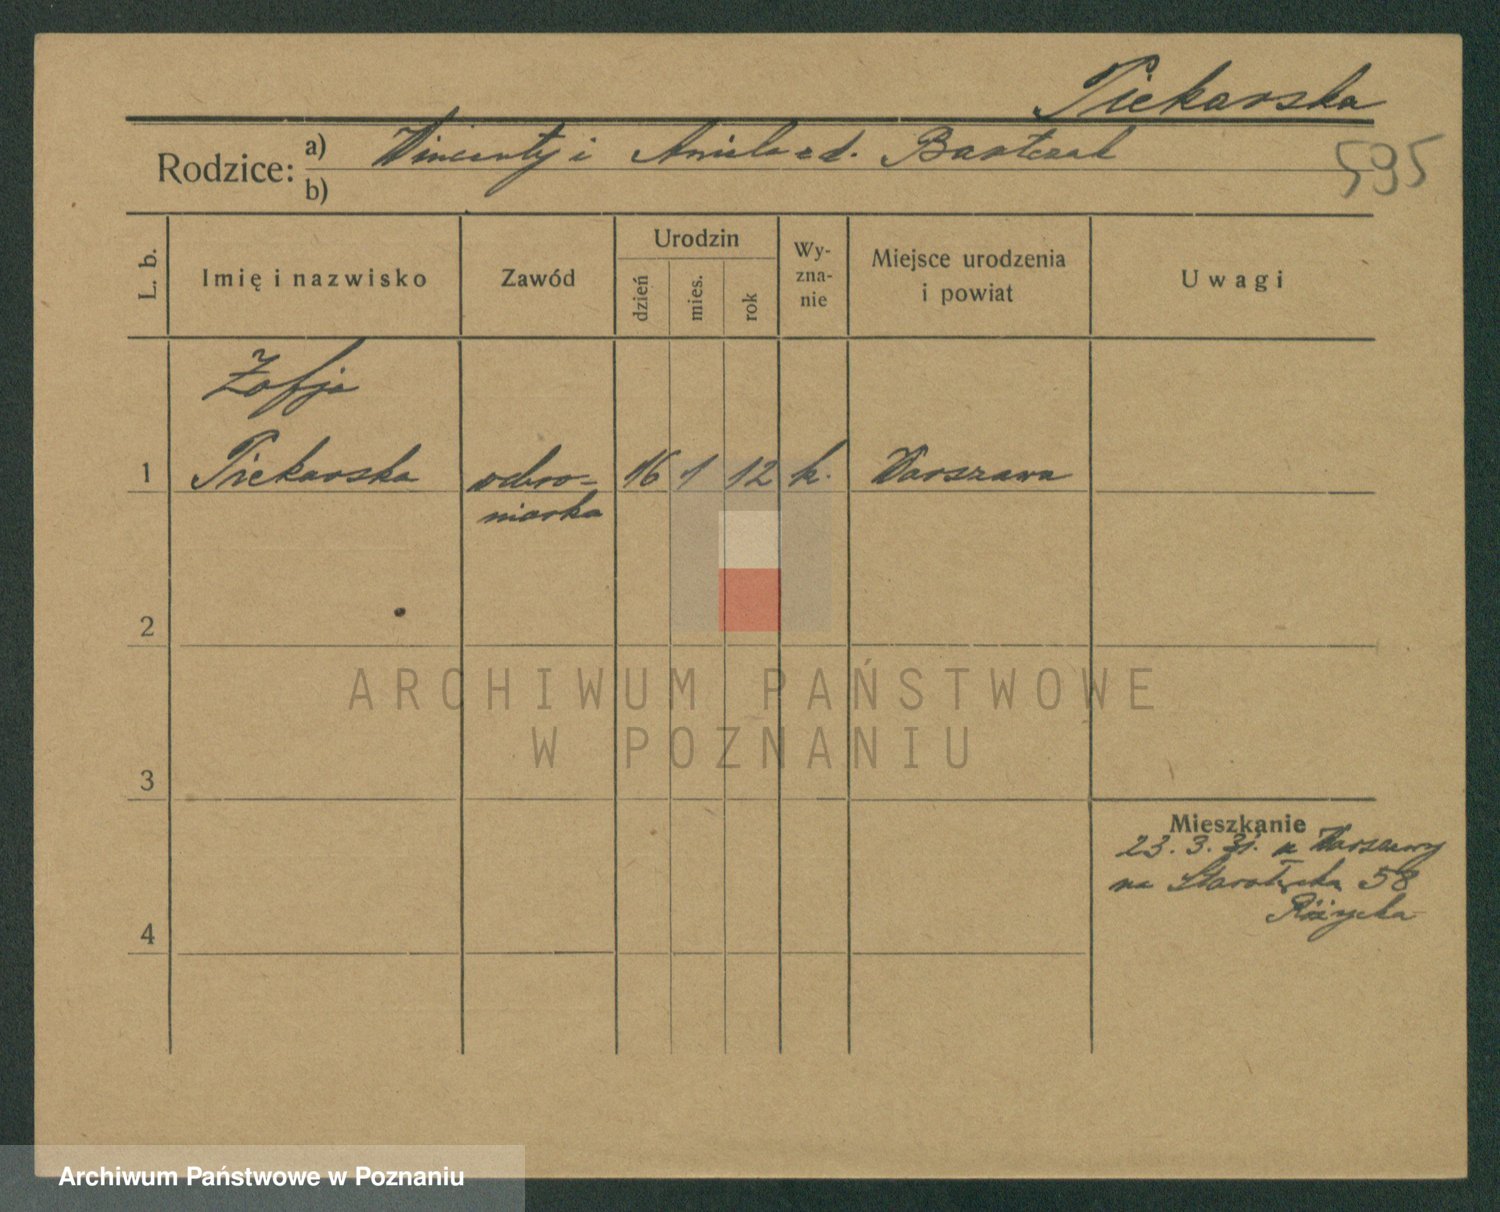 Piekarska
Rodzice: a) Wincenty i Aniela z d. Bartczak
b)
595
L. b.
Imię i nazwisko
Zawód
Urodzin
dzień
mies.
rok
Wy-
zna-
nie
Miejsce urodzenia
i powiat
Uwagi
Zofja
1 Piekarska 16 1 12 k. Warszawa
niarka
2
3
4
Mieszkanie
23. 3. 31. z Warszawy
na Starołęcka 58
Różycka
ARCHIWUM PAŃSTWOWE
W POZNANIU
Archiwum Państwowe w Poznaniu